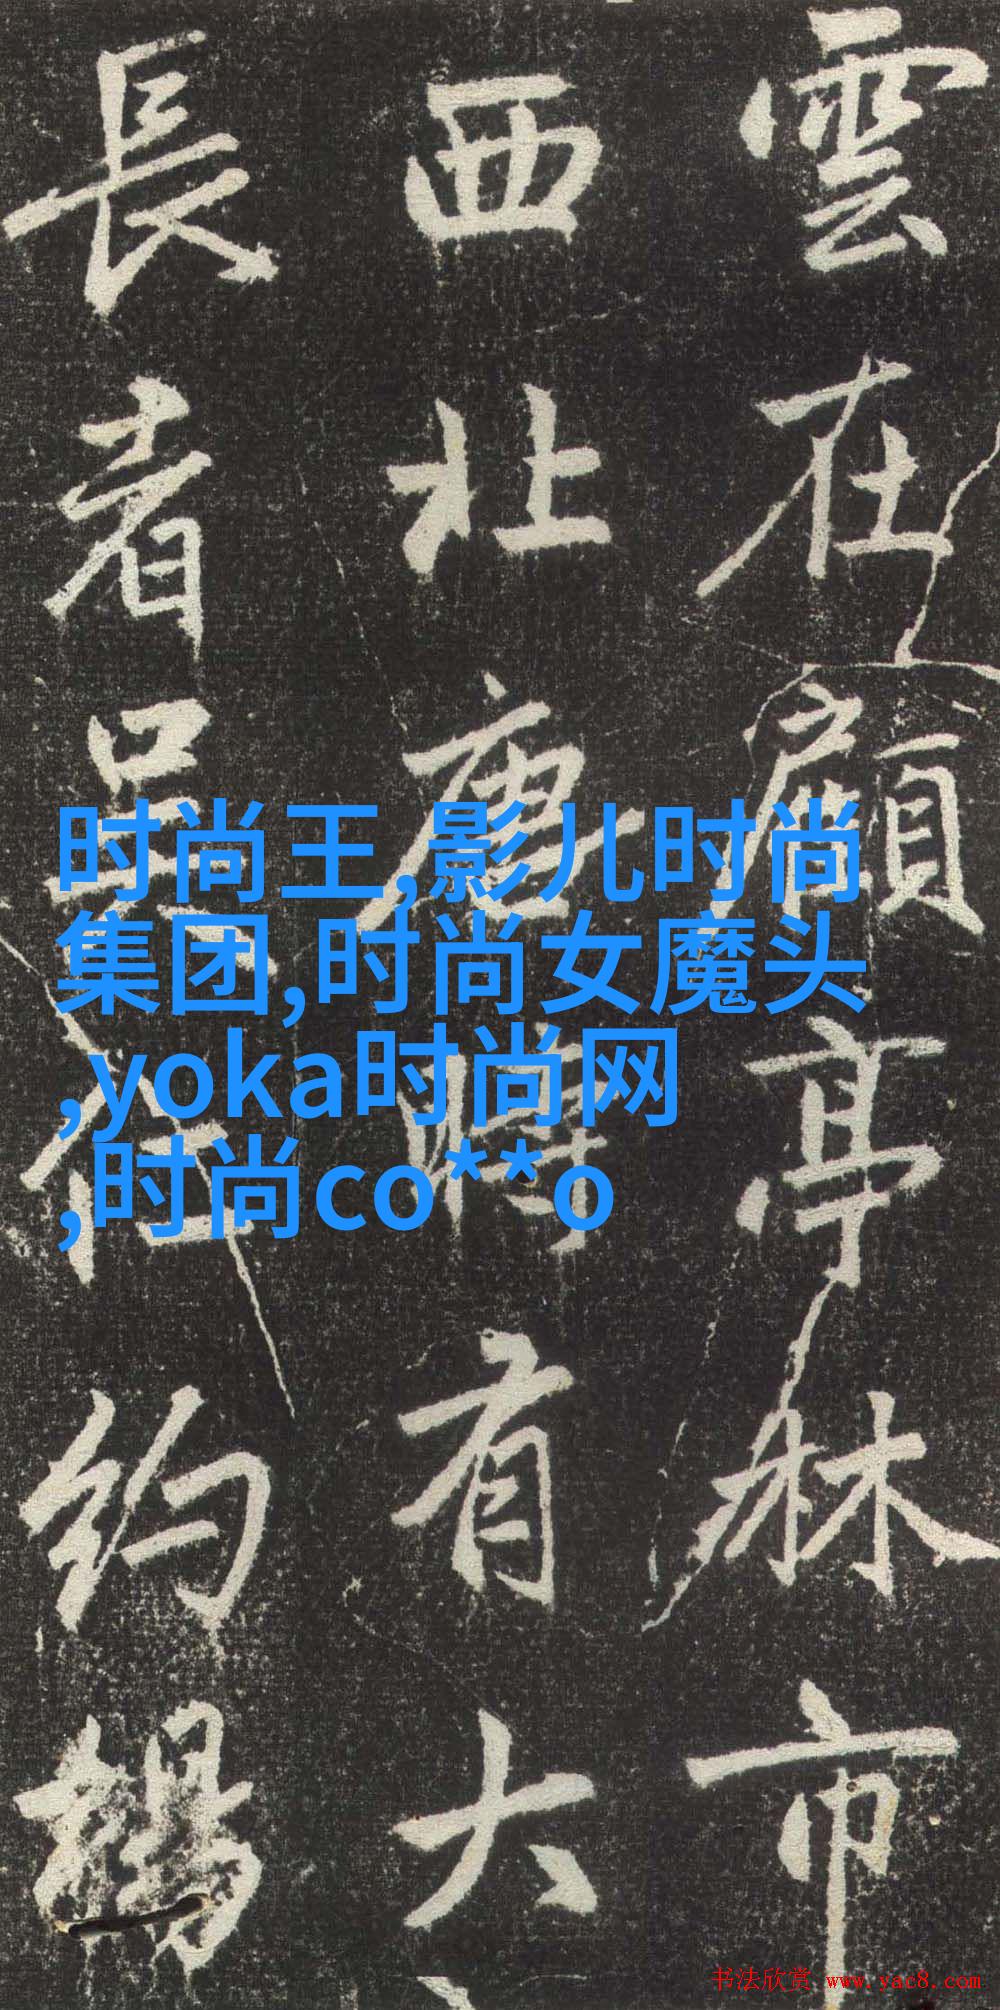 雲在顧亭林市
西北唐時有大
長者吳約
时尚王,影儿时尚
集团,时尚女魔头
,yoka时尚网
,时尚co**o
书法欣赏 www.yac8.com